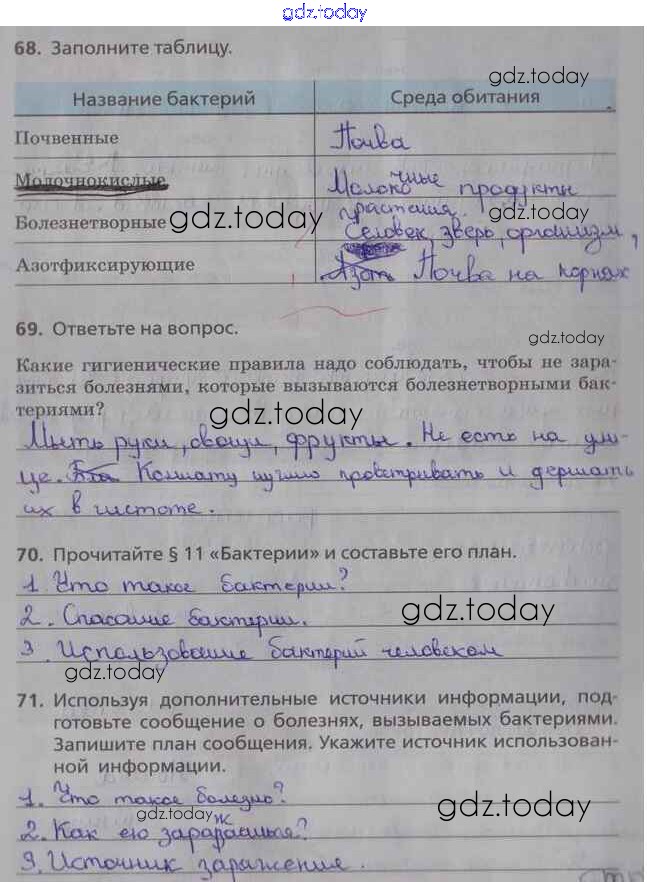 gdz.today
68. Заполните таблицу.
gdz.today
Название бактерий Среда обитания
Почвенные Почва
Молочнокислые Молочные продукты
gdz.today
растения.
Болезнетворные gdz.today Человек, зверь, организм,
Азотфиксирующие Азот Почва на корнях
69. Ответьте на вопрос.
gdz.today
Какие гигиенические правила надо соблюдать, чтобы не зара-
зиться болезнями, которые вызываются болезнетворными бак-
териями?
gdz.today
Мыть руки, овощи, фрукты. Не есть на ули-
це. Комнату нужно проветривать и держать
их в чистоте.
70. Прочитайте § 11 «Бактерии» и составьте его план.
1. Что такое бактерии?
2. Спасание бактерии.
gdz.today
3. Использование бактерий человеком
gdz.today
71. Используя дополнительные источники информации, под-
готовьте сообщение о болезнях, вызываемых бактериями.
Запишите план сообщения. Укажите источник использован-
ной информации.
1. Что такое болезнь?
gdz.today gdz.today
2. Как ею заражаешься?
3. Источник заражения.